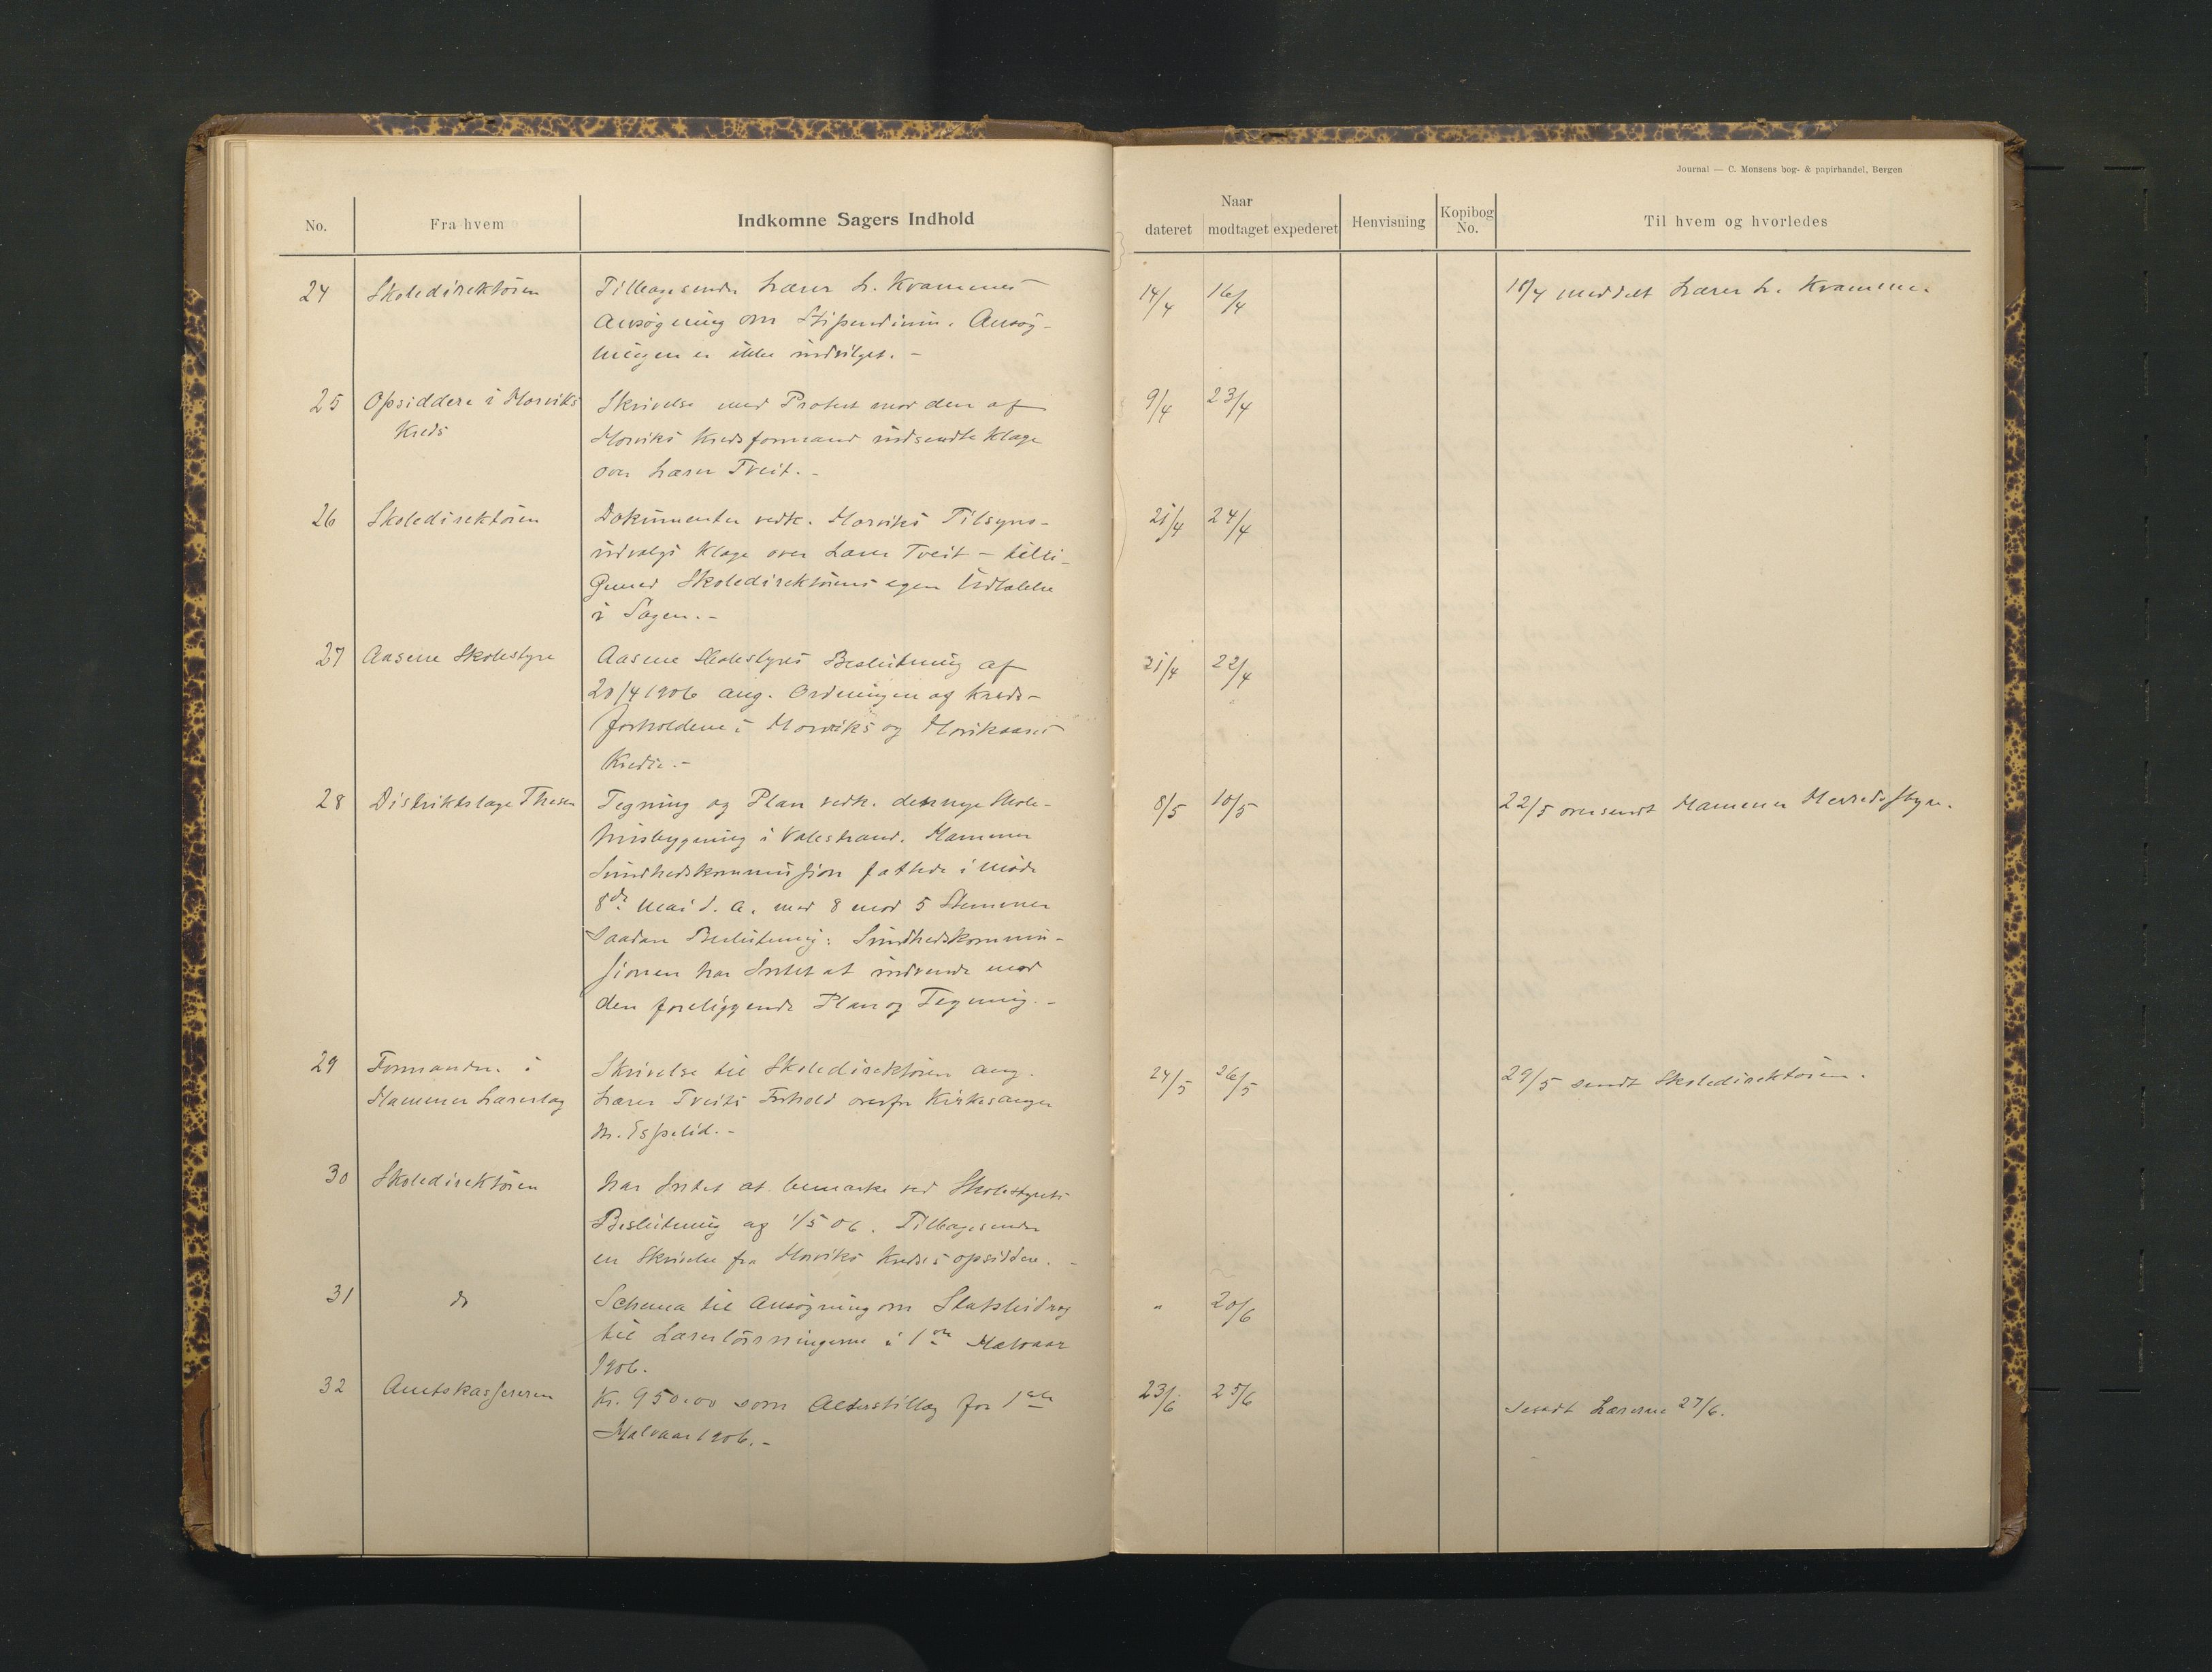 Journal — C. Monsens bog- & papirhandel, Bergen
No. Fra hvem Indkomne Sagers Indhold
Naar
dateret modtaget expederet Henvisning Kopibog No. Til hvem og hvorledes
24 Skoledirektören Tilbagesender Lærer L. Kvammes 14/4 16/4 18/4 meddelt Lærer L. Kvamme.
Ansøgning om Stipendium. Ansøg-
ningen er ikke indvilget. -
25 Opsiddere i Horviks Skrivelse med Protest mod den af 9/4 23/4
Kreds Horviks Kredsformand indsendte Klage
over Lærer Tveit. -
26 Skoledirektören Dokumenter vedk. Horviks Tilsyns- 21/4 24/4
udvalgs Klage over Lærer Tveit - tilli-
gemed Skoledirektörens egen Udtalelse
i Sagen. -
27 Aasene Skolestyre Aasene Skolestyres Beslutning af 21/4 22/4
20/4 1906 ang. Ordningen af Kreds-
forholdene i Horviks og
Kredse. -
28 Distriktslæge Thesen Tegning og Plan vedk. den nye Skole- 8/5 10/5 22/5 oversendt Hammer Herredsstyre.
husbygning i Valestrand. Hammer
Sundhedskommission fattede i Møde
8de Mai d. A. med 8 mod 5 Stemmer
saadan Beslutning: Sundhedskommis-
sionen har Intet at indvende mod
den foreliggende Plan og Tegning. -
29 Formanden i Skrivelse til Skoledirektören ang. 24/5 26/5 29/5 sendt Skoledirektören.
Hammer Lærerlag Lærer Tveits Forhold overfor Kirkesanger
M. Espelid. -
30 Skoledirektören har Intet at bemærke ved Skolestyrets
Beslutning af 1/5 06. Tilbagesender
en Skrivelse fra Horviks Kredses opsiddere. -
31 do Schema til Ansøgning om Statsbidrag " 20/6
til Lærerlönningerne i 1ste Halvaar
1906.
32 Amtskassereren Kr. 950.00 som Alderstillæg for 1ste 23/6 25/6 sendt Lærerne 27/6.
Halvaar 1906. -